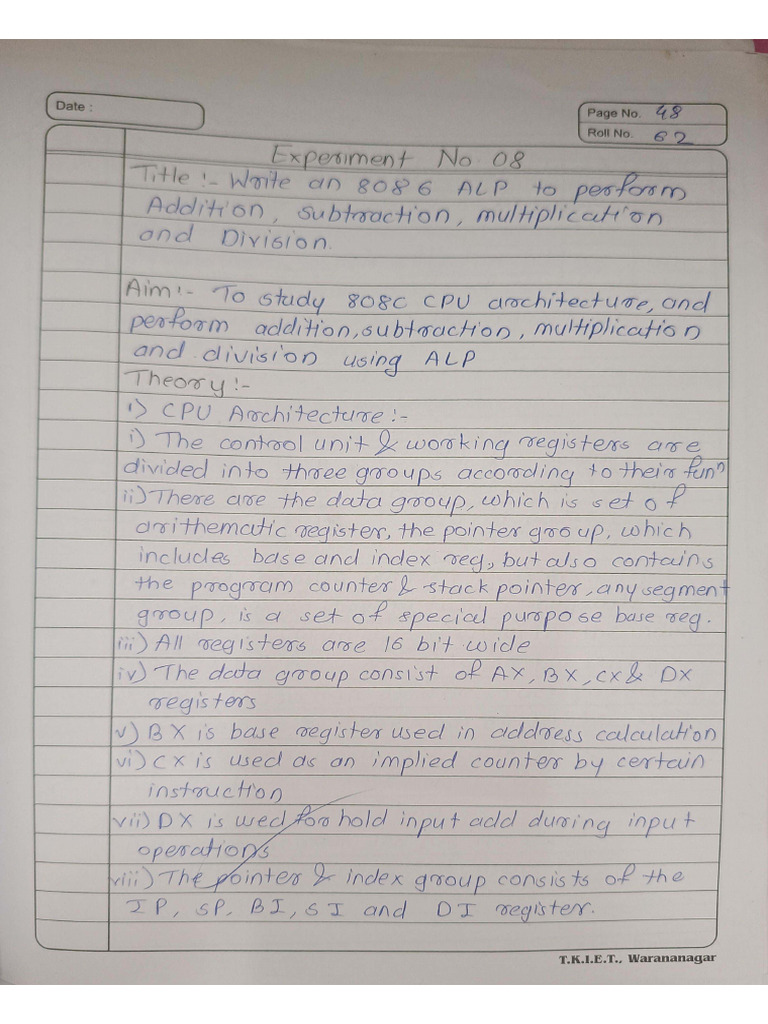 Date :
Page No. 48
Roll No. 62
Experiment No. 08
Title :- Write an 8086 ALP to perform
Addition, subtraction, multiplication
and Division.
Aim :- To study 808C CPU architecture, and
perform addition, subtraction, multiplication
and division using ALP
Theory :-
1) CPU Architecture :-
i) The control unit & working registers are
divided into three groups according to their funⁿ
ii) There are the data group, which is set of
arithematic register, the pointer group, which
includes base and index reg, but also contains
the program counter & stack pointer, any segment
group, is a set of special purpose base reg.
iii) All registers are 16 bit wide
iv) The data group consist of AX, BX, CX & DX
registers
v) BX is base register used in address calculation
vi) CX is used as an implied counter by certain
instruction
vii) DX is used for hold input add during input
operations
viii) The pointer & index group consists of the
IP, SP, BI, SI and DI register.
T.K.I.E.T., Warananagar